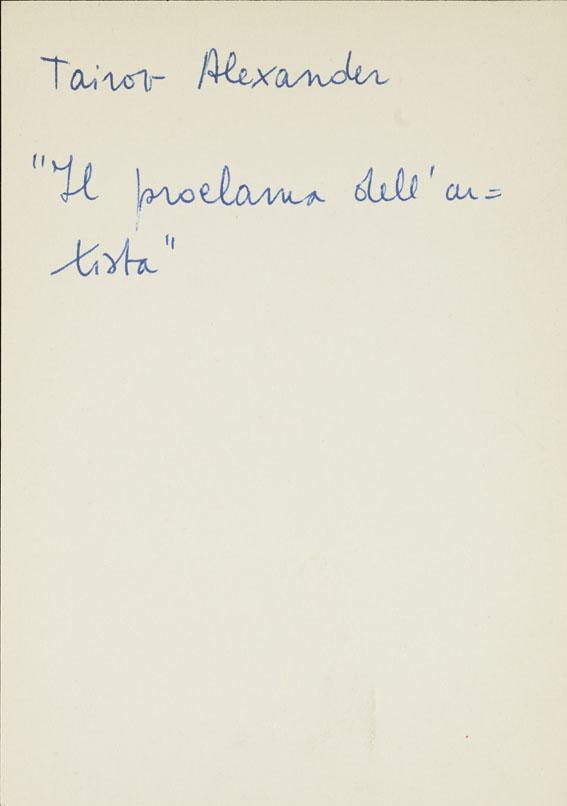 Tairov Alexander
"Il proclama dell'ar=
tista"